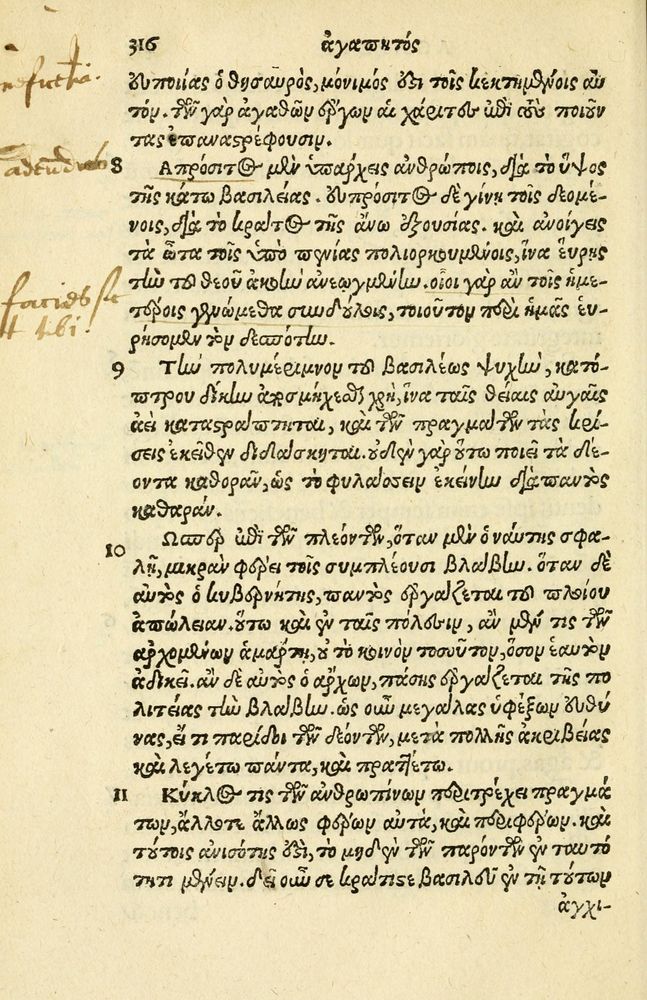 316 ἀγαπητός
εὐποιίας ὁ θησαυρός, μόνιμός ἐστι τοῖς κεκτημένοις αὐ
τόν. τῶν γὰρ ἀγαθῶν ἔργων αἱ χάριτες ἐπὶ τοὺς ποιοῦν
τας ἐπαναστρέφουσιν.
8 Ἀπρόσιτος μὲν ὑπάρχεις ἀνθρώποις, διὰ τὸ ὕψος
τῆς κάτω βασιλείας. εὐπρόσιτος δὲ γίνῃ τοῖς δεομέ-
νοις, διὰ τὸ κράτος τῆς ἄνω ἐξουσίας. καὶ ἀνοίγεις
τὰ ὦτα τοῖς ὑπὸ πενίας πολιορκουμένοις, ἵνα εὕρῃς
τὴν τοῦ θεοῦ ἀκοὴν ἀνεῳγμένην. οἷοι γὰρ ἂν τοῖς ἡμε-
τέροις γενώμεθα συνδούλοις, τοιοῦτον περὶ ἡμᾶς εὑ-
ρήσομεν τὸν δεσπότην.
9 Τὴν πολυμέριμνον τοῦ βασιλέως ψυχὴν, κατό-
πτρου δίκην ἀποσμήχεσθαι χρὴ, ἵνα ταῖς θείαις αὐγαῖς
ἀεὶ καταστράπτηται, καὶ τῶν πραγμάτων τὰς κρί-
σεις ἐκεῖθεν διδάσκηται. οὐδὲν γὰρ οὕτω ποιεῖ τὰ δέ-
οντα καθορᾶν, ὡς τὸ φυλάσσειν ἐκείνην διὰ παντὸς
καθαράν.
10 Ὥσπερ ἐπὶ τῶν πλεόντων, ὅταν μὲν ὁ ναύτης σφα-
λῇ, μικρὰν φέρει τοῖς συμπλέουσι βλάβην. ὅταν δὲ
αὐτὸς ὁ κυβερνήτης, παντὸς ἐργάζεται τοῦ πλοίου
ἀπώλειαν. οὕτω καὶ ἐν ταῖς πόλεσιν, ἂν μέν τις τῶν
ἀρχομένων ἁμάρτῃ, οὐ τὸ κοινὸν τοσοῦτον, ὅσον ἑαυτὸν
ἀδικεῖ. ἂν δὲ αὐτὸς ὁ ἄρχων, πάσης ἐργάζεται τῆς πο
λιτείας τὴν βλάβην. ὡς οὖν μεγάλας ὑφέξων εὐθύ
νας, εἴ τι παρίδοι τῶν δεόντων, μετὰ πολλῆς ἀκριβείας
καὶ λεγέτω πάντα, καὶ πραττέτω.
11 Κύκλος τις τῶν ἀνθρωπίνων περιτρέχει πραγμά
των, ἄλλοτε ἄλλως φέρων αὐτὰ, καὶ περιφέρων. καὶ
τούτοις ἀνισότης ἐστὶ, τὸ μηδὲν τῶν παρόντων ἐν ταυτό
τητι μένειν. δεῖ οὖν σε κράτιστε βασιλεῦ ἐν τῇ τούτων
ἀγχι-
adeundus
facies sic
tibi.